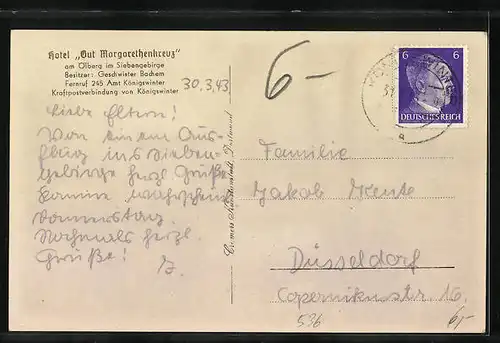 Hotel „Gut Margarethenkreuz"
am Ölberg im Siebengebirge
Besitzer: Geschwister Bachem
Fernruf 245 Amt Königswinter
Kraftpostverbindung von Königswinter
30.3.43
Liebe Eltern!
Von einem Aus-
flug ins Sieben-
gebirge herzl. Grüße.
Komme wahrschein.
Donnerstag.
Nochmals herzl.
Grüße!
6-
6 6
DEUTSCHES REICH
Familie
Jakob
Düsseldorf
Copernikusstr. 16.
536
6,-